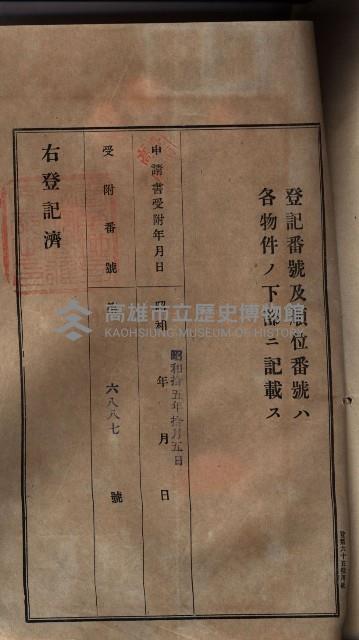 登記番號及順位番號ハ
各物件ノ下部ニ記載ス
申請書受附年月日
昭和 年 月 日
昭和拾五年拾月五日
受附番號
第 六八八七 號
右登記濟
高雄市立歷史博物館
KAOHSIUNG MUSEUM OF HISTORY